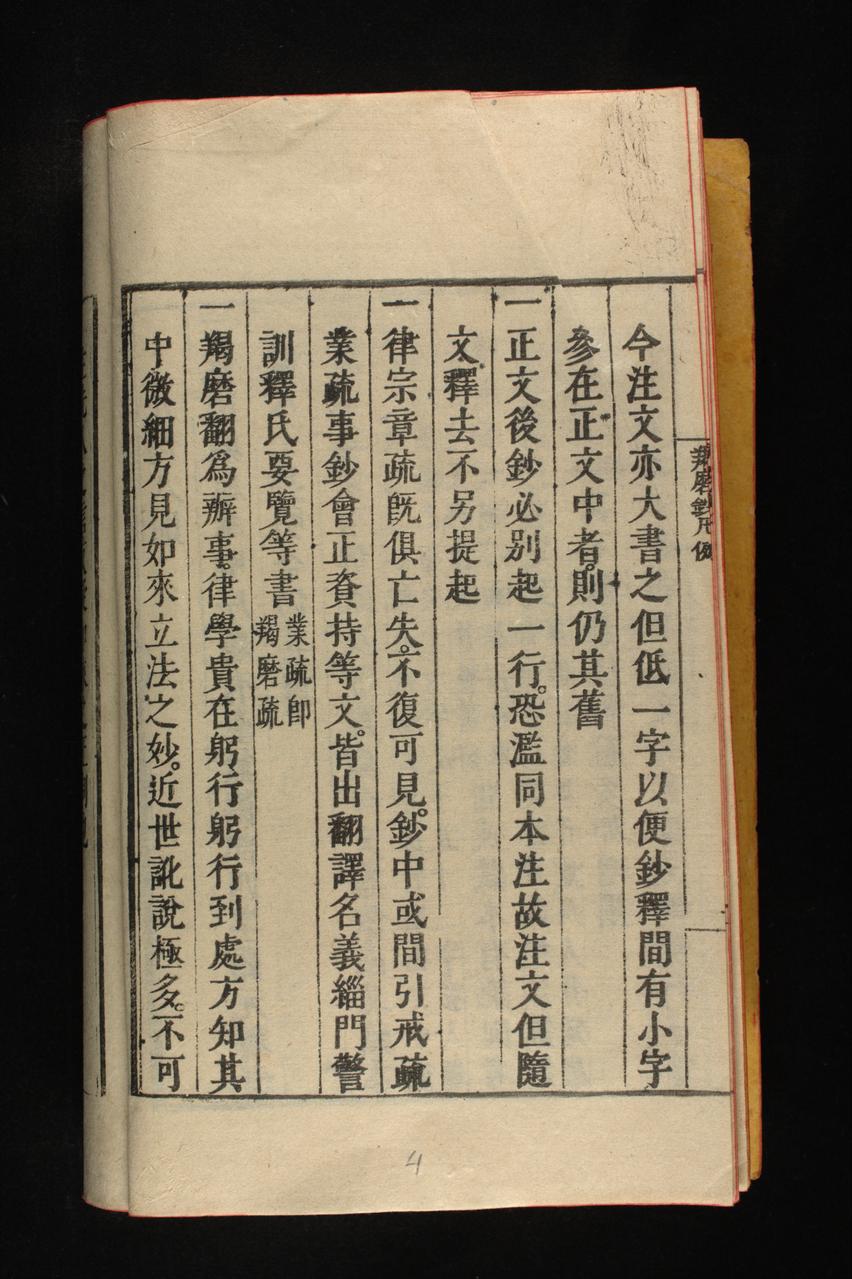 羯磨鈔凡例
今注文亦大書之但低一字以便鈔釋間有小字
參在正文中者。則仍其舊
一正文後鈔必別起一行。恐濫同本注故注文但隨
文釋去不另提起
一律宗章疏旣俱亡失。不復可見。鈔中或間引戒疏
業疏事鈔會正資持等文。皆出翻譯名義緇門警
訓釋氏要覽等書業疏卽
羯磨疏
一羯磨翻爲辦事。律學貴在躬行躬行到處方知其
中微細方見如來立法之妙。近世訛說極多。不可
4